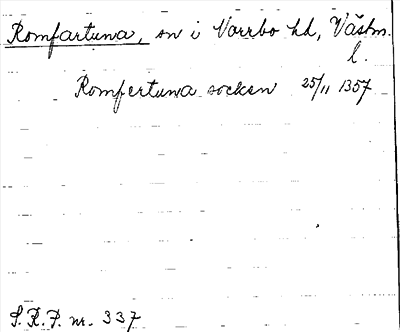 Romfartuna, sn i Norrbo hd, Västm.
l.
Romfertuna socken 25/11 1357
S.R.P. nr. 337